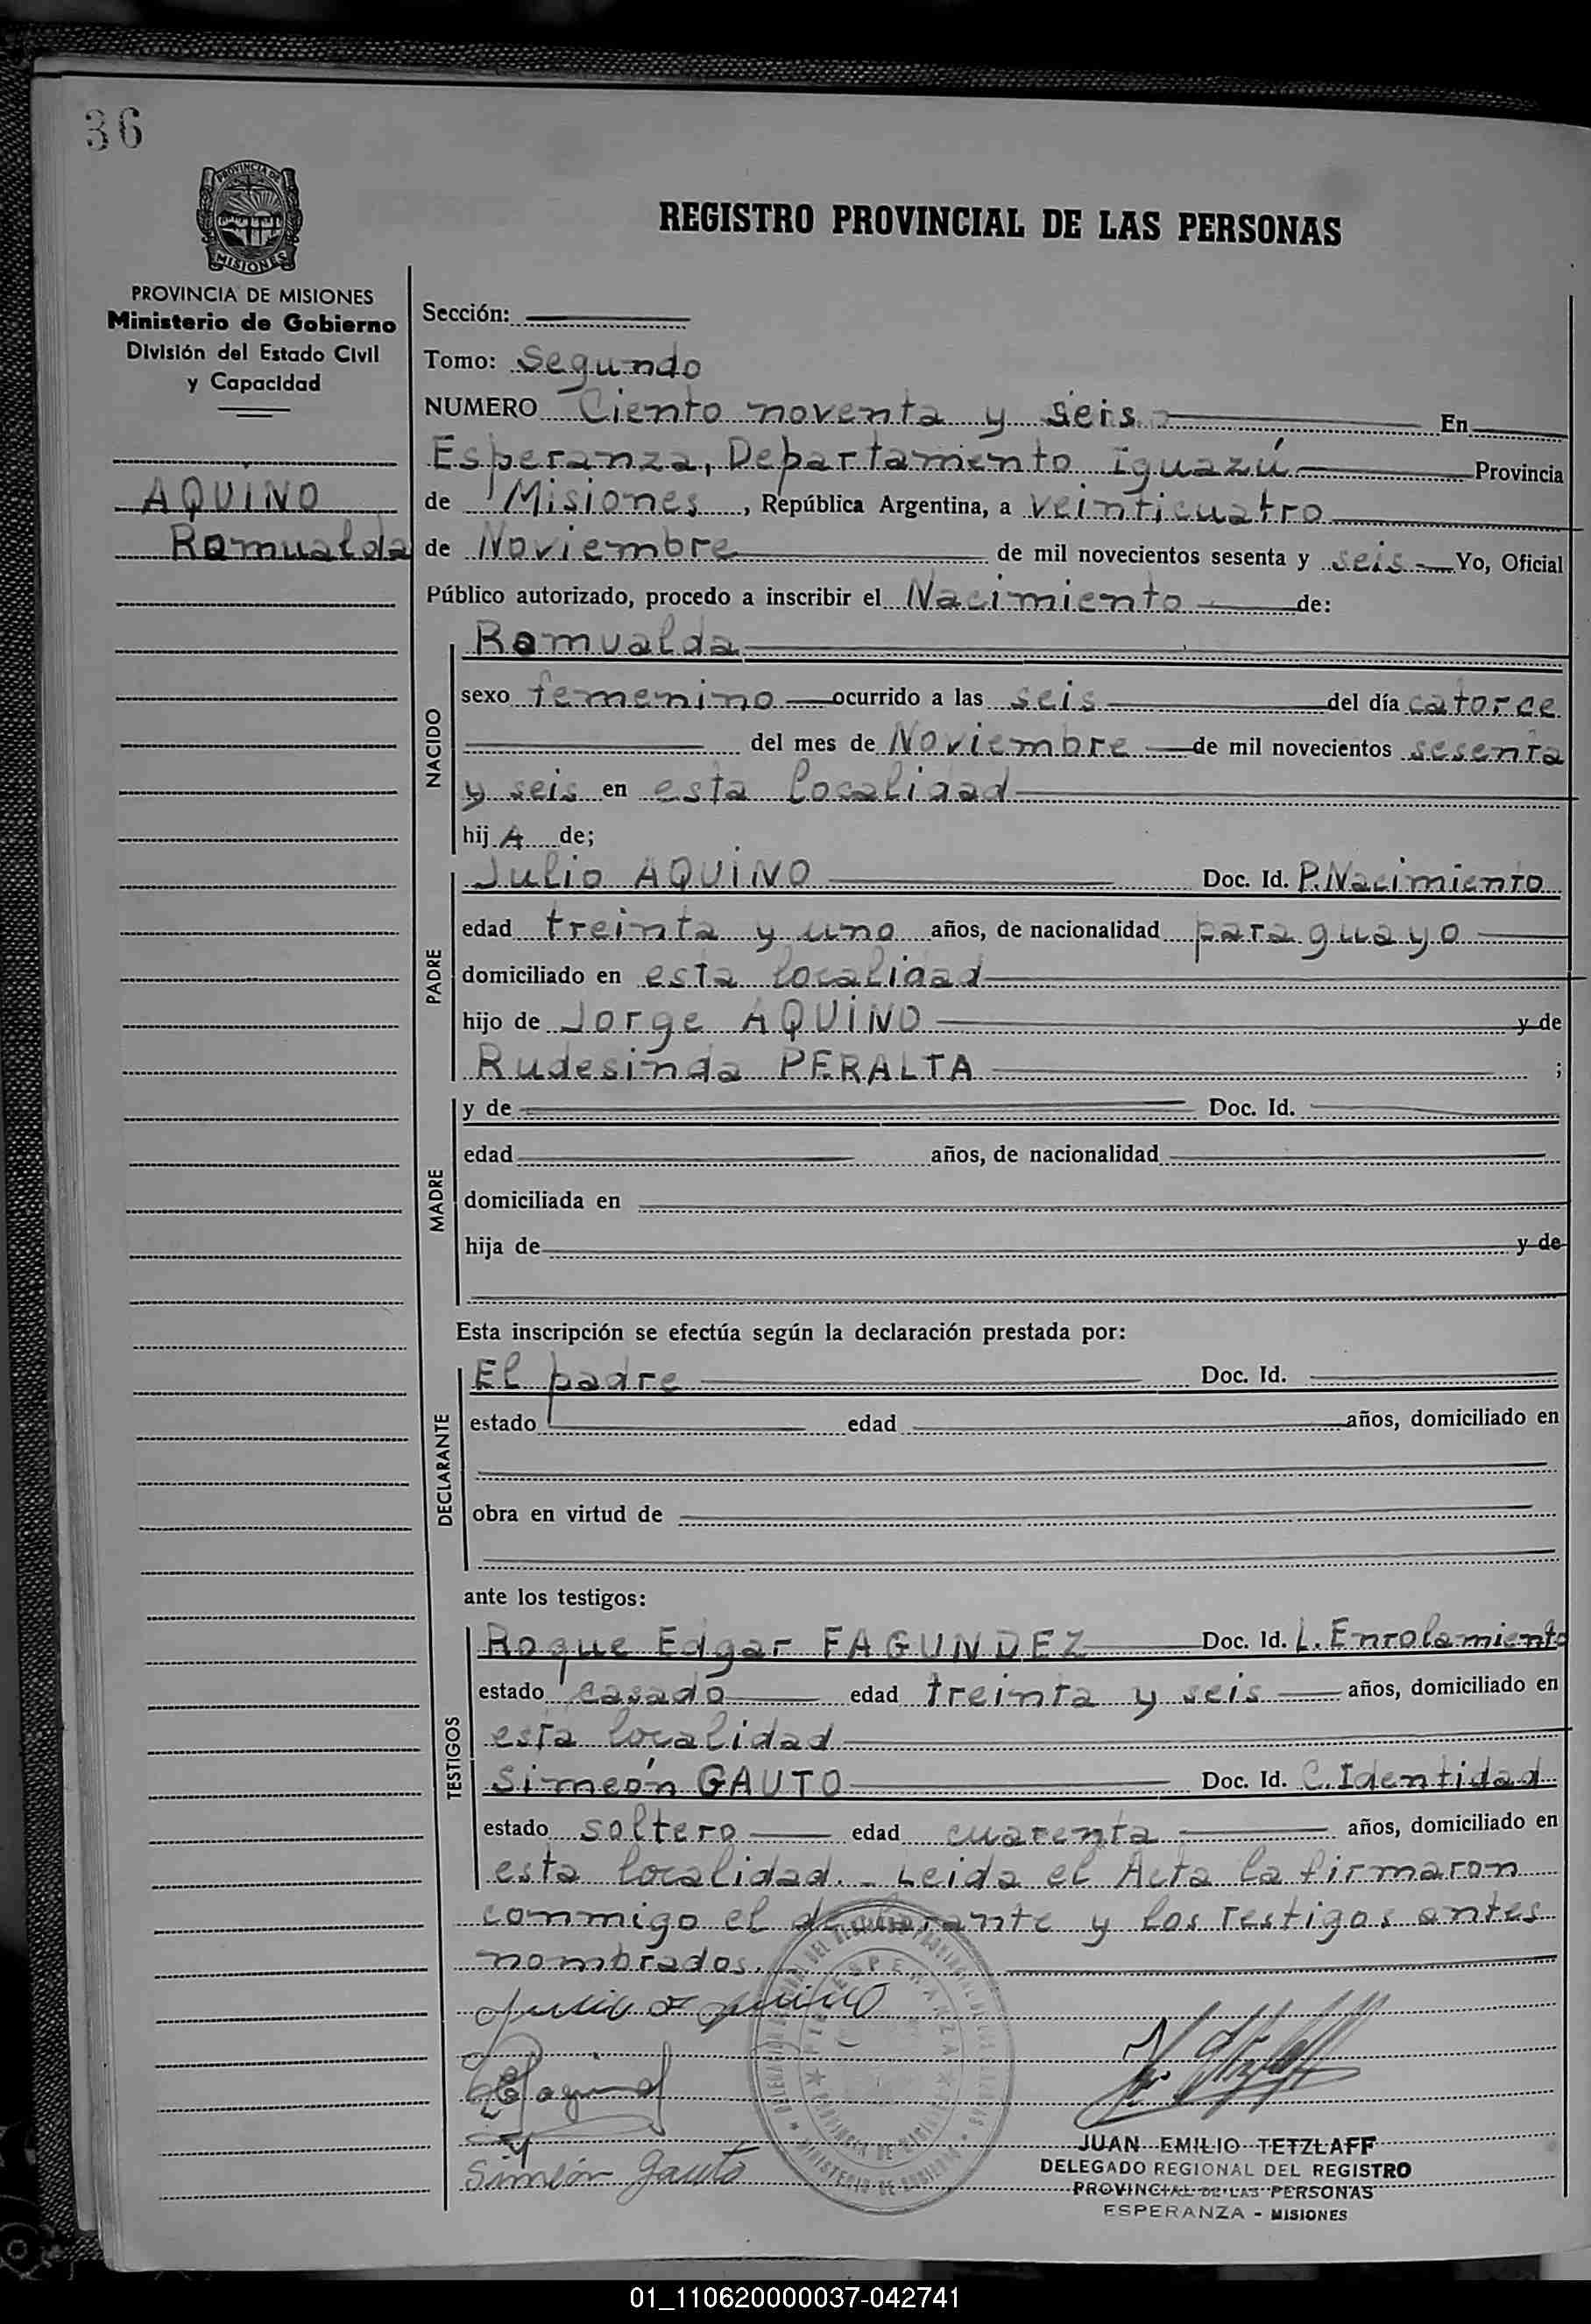 36
PROVINCIA DE
MISIONES
REGISTRO PROVINCIAL DE LAS PERSONAS
PROVINCIA DE MISIONES
Ministerio de Gobierno
División del Estado Civil
y Capacidad
AQUINO
Romualda
Sección:
Tomo: Segundo
NUMERO Ciento noventa y seis En
Esperanza, Departamento iguazú Provincia
de Misiones, República Argentina, a veinticuatro
de Noviembre de mil novecientos sesenta y seis Yo, Oficial
Público autorizado, procedo a inscribir el Nacimiento de:
NACIDO
Romualda
sexo femenino ocurrido a las seis del día catorce
del mes de Noviembre de mil novecientos sesenta
y seis en esta localidad
hij A de;
PADRE
Julio AQUINO Doc. Id. P. Nacimiento
edad treinta y uno años, de nacionalidad paraguayo
domiciliado en esta localidad
hijo de Jorge AQUINO y de
Rudesinda PERALTA ;
MADRE
y de Doc. Id.
edad años, de nacionalidad
domiciliada en
hija de y de
Esta inscripción se efectúa según la declaración prestada por:
DECLARANTE
El padre Doc. Id.
estado edad años, domiciliado en
obra en virtud de
ante los testigos:
TESTIGOS
Roque Edgar FAGUNDEZ Doc. Id. L. Enrolamiento
estado casado edad treinta y seis años, domiciliado en
esta localidad
Simeón GAUTO Doc. Id. C. Identidad
estado soltero edad cuarenta años, domiciliado en
esta localidad. - Leida el Acta la firmaron
conmigo el declarante y los testigos antes
nombrados.
ESPERANZA
Simeón Gauto
JUAN EMILIO TETZLAFF
DELEGADO REGIONAL DEL REGISTRO
PROVINCIAL DE LAS PERSONAS
ESPERANZA - MISIONES
01_110620000037-042741